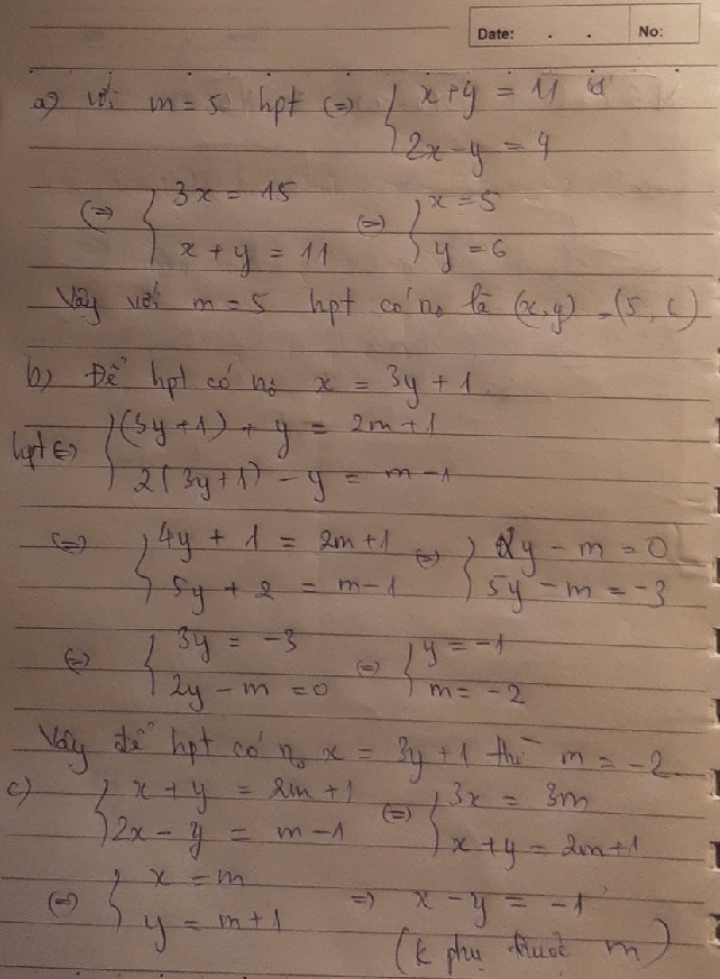 Date: . . No:
a) với m = 5 hpt (=) { x + y = 11
2x - y = 4
(=) { 3x = 15 (=) { x = 5
x + y = 11 y = 6
Vậy với m = 5 hpt có n₀ là (x,y) = (5, 6)
b) Để hpt có n₀ x = 3y + 1
hpt (=) { (3y + 1) + y = 2m + 1
2(3y+1) - y = m - 1
(=) { 4y + 1 = 2m + 1 (=) { 2y - m = 0
5y + 2 = m - 1 5y - m = -3
(=) { 3y = -3 (=) { y = -1
2y - m = 0 m = -2
Vậy để hpt có n₀ x = 3y + 1 thì m = -2
c) { x + y = 2m + 1 (=) { 3x = 3m
2x - y = m - 1 x + y = 2m + 1
(=) { x = m => x - y = -1
y = m + 1 (k phụ thuộc m)